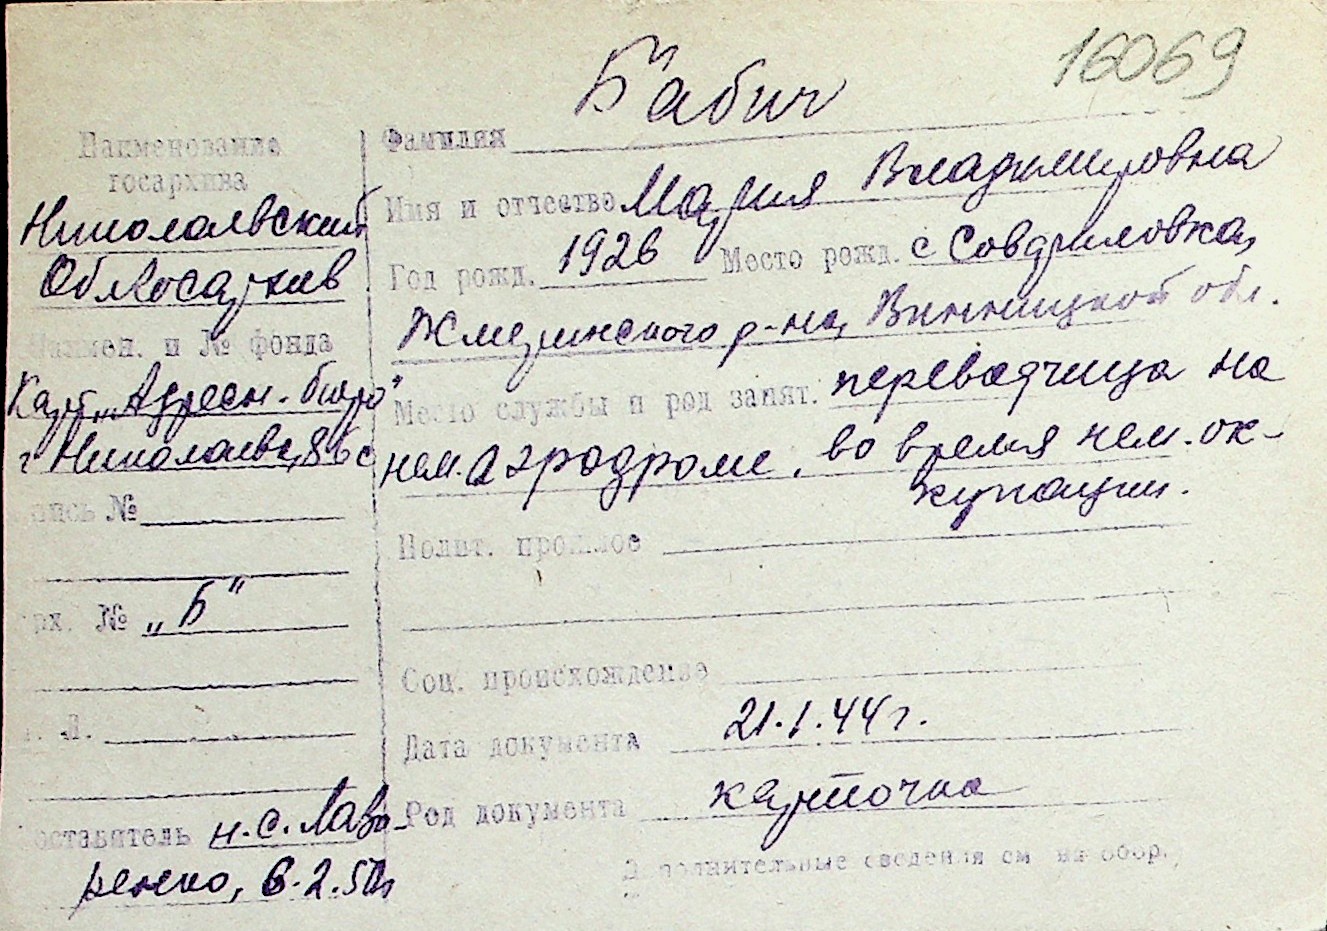 16069
Бабич
Фамилия
Наименование
госархива
Николаевский
Облгосархив
Имя и отчество Мария Владимировна
Год рожд. 1926 Место рожд. с Совдриловка,
Жмеринского р-на, Винницкой обл.
Наимен. и № фонда
Карт. „Адресн. бюро"
г Николаева,
Место службы и род занят. переводчица на
нем. аэродроме, во время нем. ок-
купации.
опись №
Полит. прошлое
арх. № „Б"
Соц. происхождение
Л.
Дата документа 21.1.44 г.
Род документа карточка
Составитель н.с. Лав
ренко, 6.2.50 г
Дополнительные сведения см на обор.